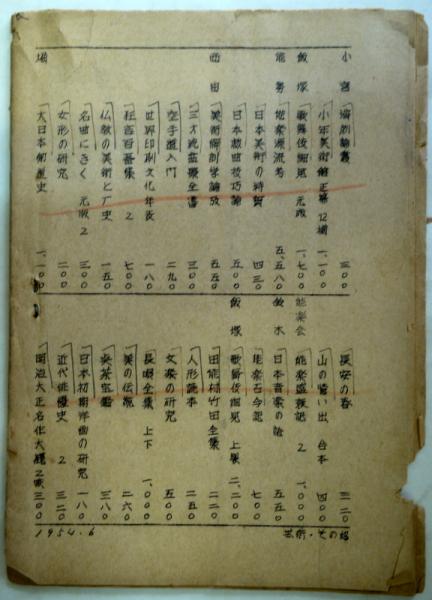 小宮 演劇論叢 三〇〇
小年美術館 正第12揃 一、一〇〇
飯塚 歌舞伎細見 元版 一、七〇〇
能勢 能楽源流考 五、五八〇
日本美術の特質 四三〇
日本戯曲技巧論 五〇〇
西田 美術解剖学論攷 五五〇
三才流盆礙全書 三〇〇
空手道入門 二九〇
世界印刷文化年表 一八〇
狂言百番集 2 七〇〇
仏教の美術と歴史 一五〇
名曲にきく 元版 2 三〇〇
女形の研究 二〇〇
堀 大日本 史 一、〇〇
長安の春 三二〇
山の思い出 台本 四〇〇
能楽会 能楽盛衰記 2 一、〇〇〇
鈴木 日本音楽の話 五五〇
能楽古今記 七〇〇
飯塚 歌舞伎細見 上製 二、二〇〇
田能村竹田全集 二二〇
人形読本 二五〇
文楽の研究 五〇〇
長唄全集 上下 一、〇〇〇
美の伝統 二六〇
三八〇
日本初期洋画の研究 一八〇
近代俳優史 2 三二〇
明治大正名作大 三〇〇
芸術・その他
1954.6